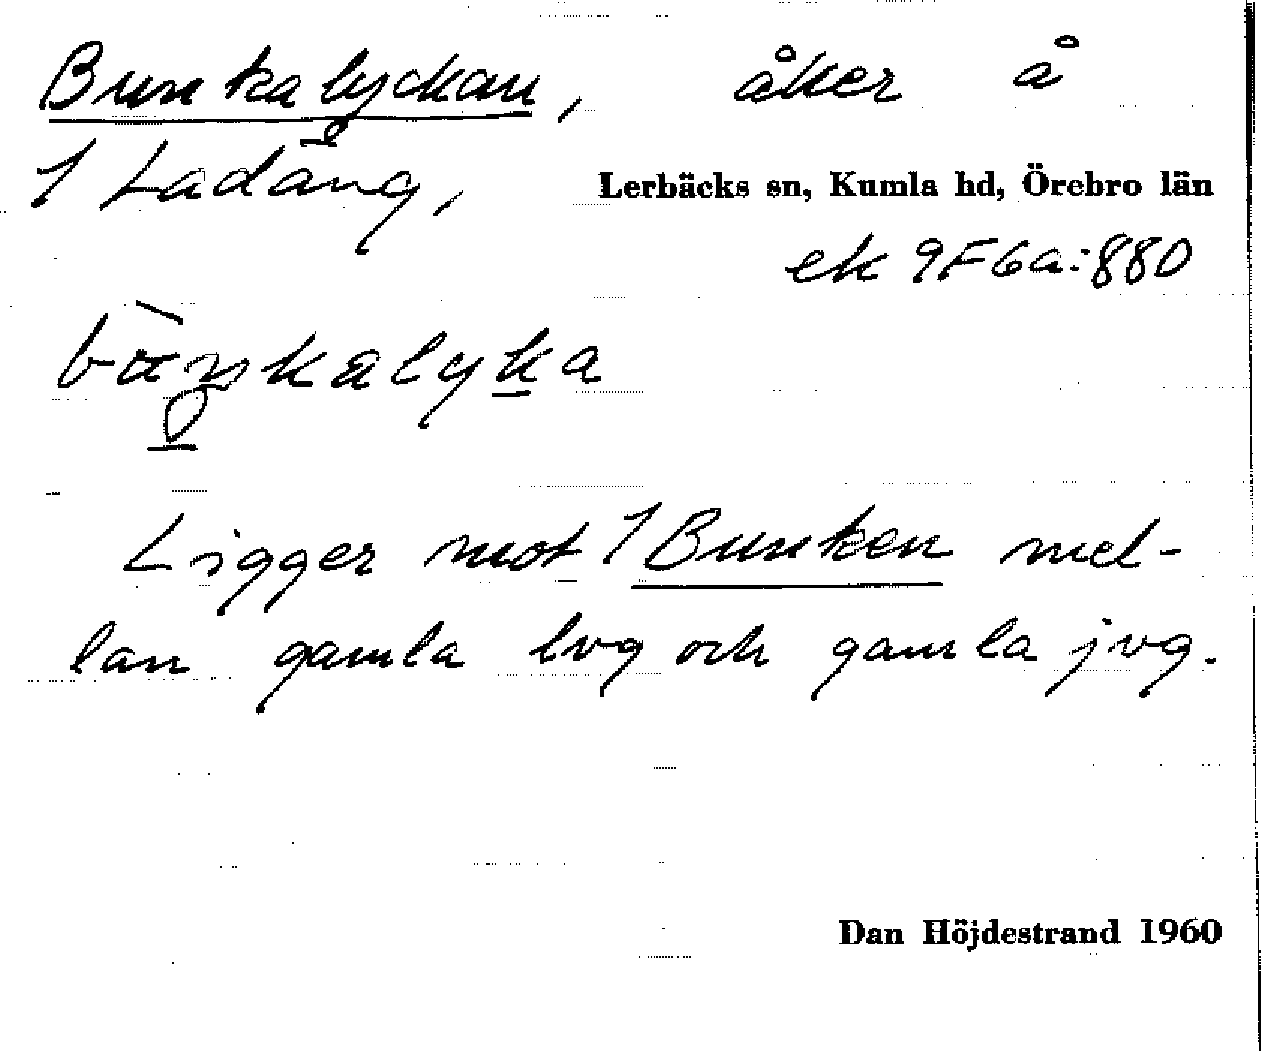 Bunkalyckan, åker å
1 Ladäng, Lerbäcks sn, Kumla hd, Örebro län
ek 9F6a:880
Ligger mot 1 Bunken mel-
lan gamla lvg och gamla jvg.
Dan Höjdestrand 1960